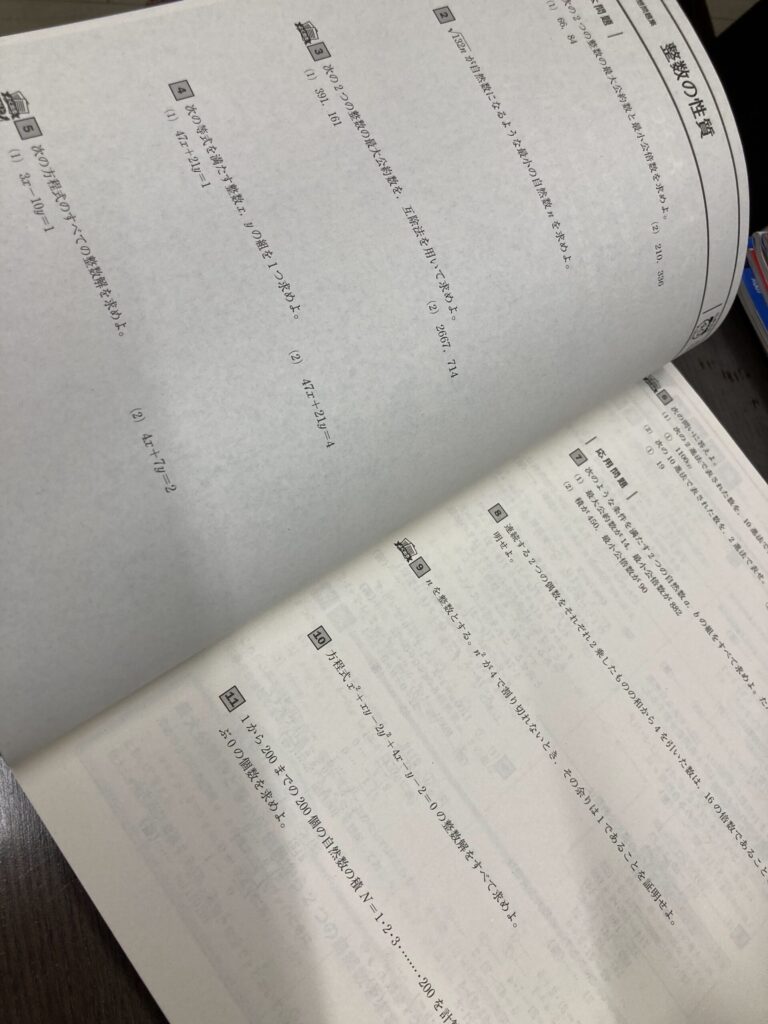 整数の性質
本問題
次の2つの整数の最大公約数と最小公倍数を求めよ。
(1) 66, 84 (2) 210, 336
2 √132n が自然数になるような最小の自然数 n を求めよ。
3 次の2つの整数の最大公約数を，互除法を用いて求めよ。
(1) 391, 161 (2) 2667, 714
4 次の等式を満たす整数 x, y の組を1つ求めよ。
(1) 47x+21y=1 (2) 47x+21y=4
5 次の方程式のすべての整数解を求めよ。
(1) 3x−10y=1 (2) 4x+7y=2
6 次の問いに答えよ。
(1) 次の2進法で表された数を，10進法で
①
(2) 次の10進法で表された数を，2進法で表せ。
① 19
応用問題
7 次のような条件を満たす2つの自然数 a, b の組をすべて求めよ。ただ
(1) 最大公約数が14，最小公倍数が882
(2) 積が450，最小公倍数が90
8 連続する2つの偶数をそれぞれ2乗したものの和から4を引いた数は，16の倍数であること
明せよ。
9 n を整数とする。n² が4で割り切れないとき，その余りは1であることを証明せよ。
10 方程式 x²+xy−2y²+4x−y−2=0 の整数解をすべて求めよ。
11 1から200までの200個の自然数の積 N=1・2・3・………・200 を計
ぶ0の個数を求めよ。